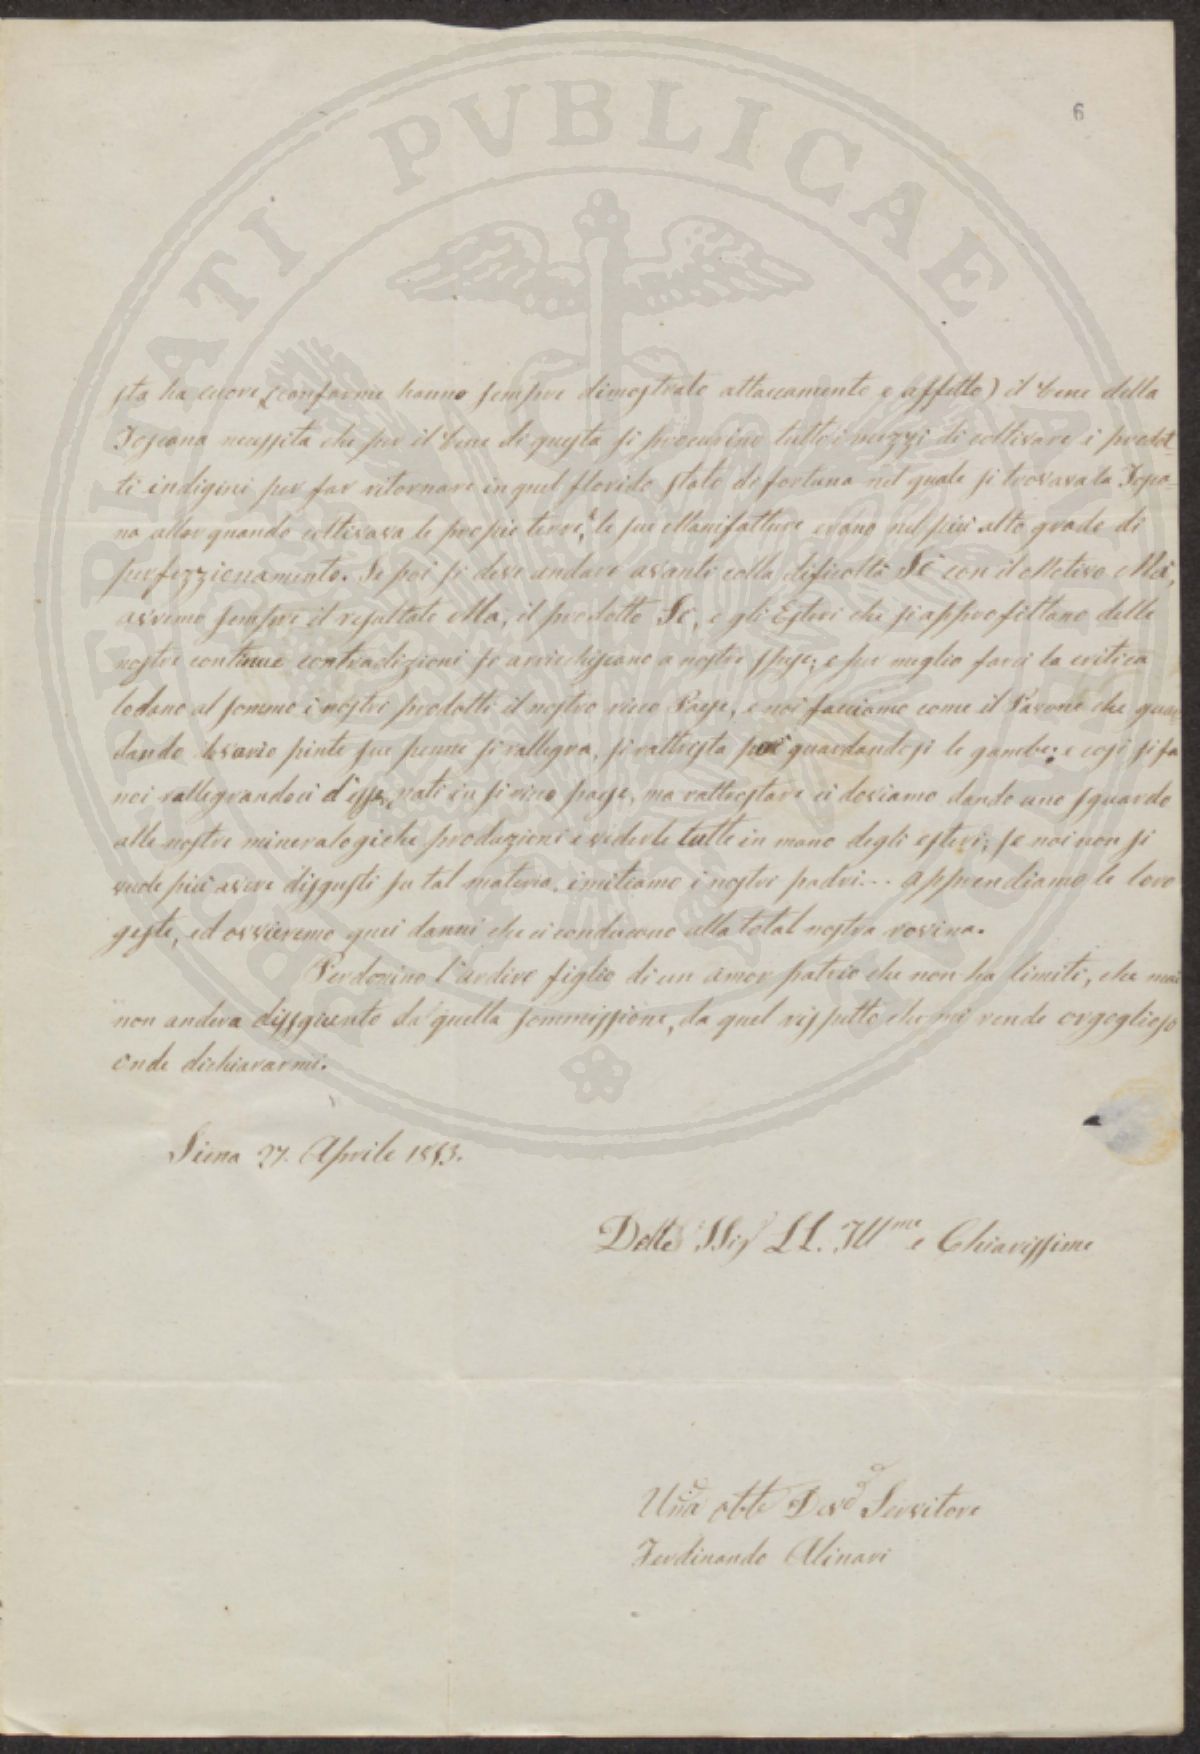 6
sta ha cuore (conforme hanno sempre dimostrato attaccamento e affetto) il bene della
Toscana necessita che per il bene di questa si procurino tutti i mezzi di coltivare i prodot-
ti indigini per far ritornare in quel florido stato di fortuna nel quale si trovava la Tosca-
na allorquando coltivava le propie terre, le sue Manifatture erano nel più alto grado di
perfezzionamento. Se poi si deve andare avanti colla dificoltà Si con il Motivo Ma,
avremo sempre il resultato Ma, il prodotto Se, e gli Esteri che si approfittano delle
nostre continue contradizioni si arrichiscano a nostre spese; e per meglio farci la critica
lodano al sommo i nostri prodotti il nostro ricco Paese, e noi facciamo come il Pavone che guar
dando le varie pinte sue penne si rallegra, si rattrista poi guardandosi le gambe; e così si fa
noi rallegrandoci d'esser nati in si ricco paese, ma rattristare ci doviamo dando uno sguardo
alle nostre mineralogiche produzioni e vederle tutte in mano degli esteri; se noi non si
vuole più avere disgusti su tal materia, imitiamo i nostri padri... apprendiamo le loro
geste, ed ovvieremo quei danni che ci conducono alla total nostra rovina.
Perdonino l'ardire figlio di un amor patrio che non ha limiti, che mai
non anderà disgiunto da quella sommissione, da quel rispetto che mi rende orgoglioso
onde dichiararmi.
Siena 27. Aprile 1853.
Delle SSig LL. Ill^me e Chiarissime
obb Dev^o Servitore
Ferdinando Alinari
PVBLICAE